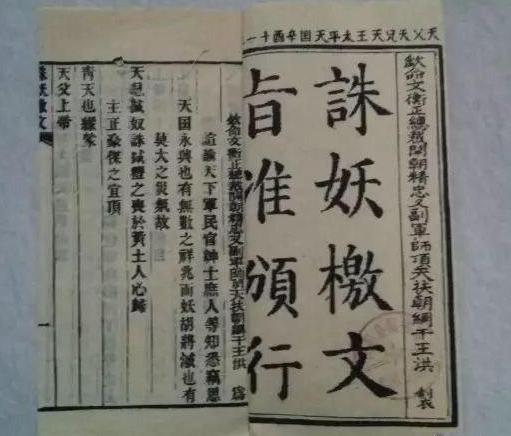 天父天兄天王太平天囯辛酉十一
欽命文衡正總裁開朝精忠又副軍師頂天扶朝綱干王洪
誅妖檄文
旨准頒行
欽命文衡正總裁開朝精忠又副軍師頂天扶朝綱干王洪 為
諠諭天下軍民官紳士庶人等知悉竊思
天囯永興也有無數之祥兆而妖胡將滅也有
莫大之災氣故
豐之喪於黃土人心歸
主正豪傑之宜頂
青天也緣蒙
天父上帝
誅妖檄文
一